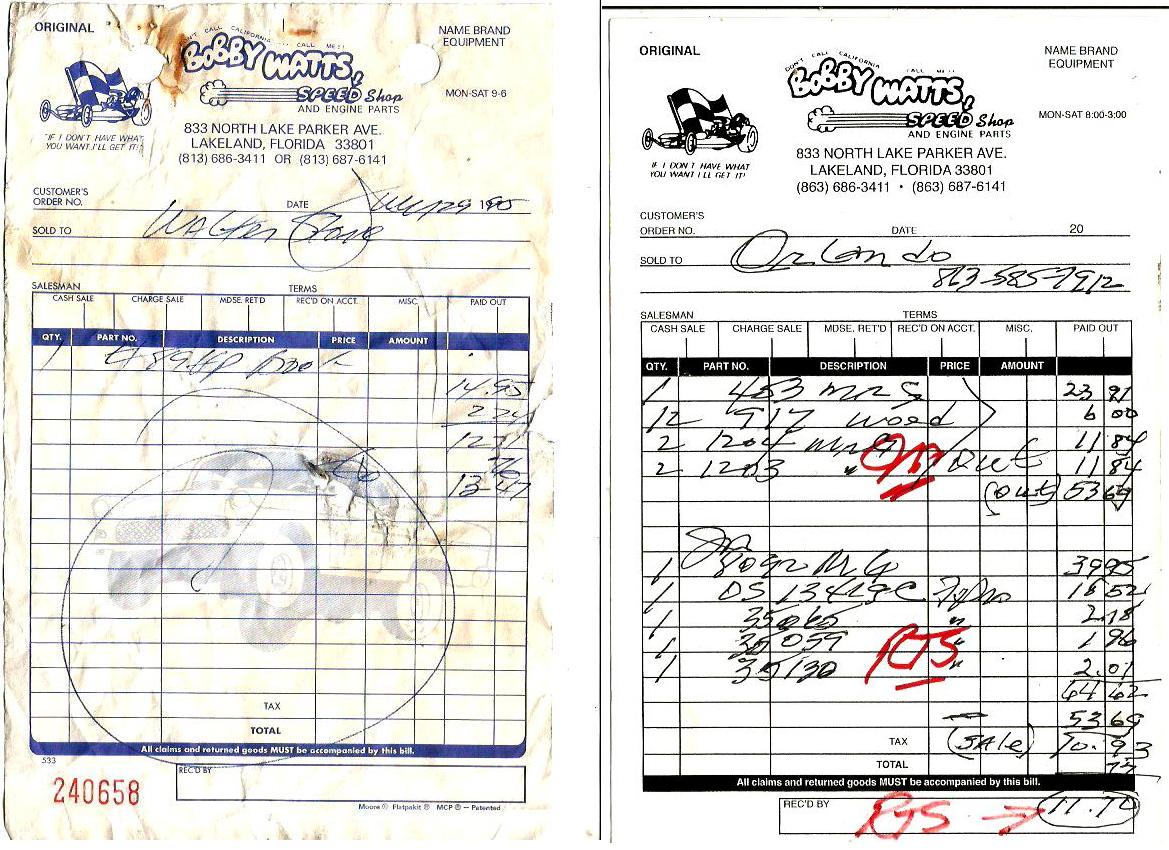 ORIGINAL
DON'T CALL CALIFORNIA CALL ME!!
BOBBY WATTS
SPEED Shop
AND ENGINE PARTS
NAME BRAND
EQUIPMENT
MON-SAT 9-6
"IF I DON'T HAVE WHAT
YOU WANT I'LL GET IT!"
833 NORTH LAKE PARKER AVE.
LAKELAND, FLORIDA 33801
(813) 686-3411 OR (813) 687-6141
CUSTOMER'S
ORDER NO.
DATE
SOLD TO Walter
SALESMAN TERMS
CASH SALE CHARGE SALE MDSE. RET'D REC'D ON ACCT. MISC. PAID OUT
QTY. PART NO. DESCRIPTION PRICE AMOUNT
1
14.95
2 24
12 71
76
13 47
TAX
TOTAL
All claims and returned goods MUST be accompanied by this bill.
533
240658
REC'D BY
Moore ® Flatpakit ® MCP ® — Patented
ORIGINAL
DON'T CALL CALIFORNIA CALL ME!!
BOBBY WATTS
SPEED Shop
AND ENGINE PARTS
NAME BRAND
EQUIPMENT
MON-SAT 8:00-3:00
IF I DON'T HAVE WHAT
YOU WANT I'LL GET IT!
833 NORTH LAKE PARKER AVE.
LAKELAND, FLORIDA 33801
(863) 686-3411 • (863) 687-6141
CUSTOMER'S
ORDER NO.
DATE 20
SOLD TO Orlando
863-585-7912
SALESMAN TERMS
CASH SALE CHARGE SALE MDSE. RET'D REC'D ON ACCT. MISC. PAID OUT
QTY. PART NO. DESCRIPTION PRICE AMOUNT
1 453 23 91
12 917 6 00
2 1204 11 84
2 1203 " out 11 84
(out) 53 69
1 39 95
1 18 52
1 35065 " 2.18
1 35059 " 1 96
1 35130 " 2.01
RTS
64 62
53 69
TAX (SALE) 10.93
TOTAL 77
All claims and returned goods MUST be accompanied by this bill.
REC'D BY RTS → 11.70